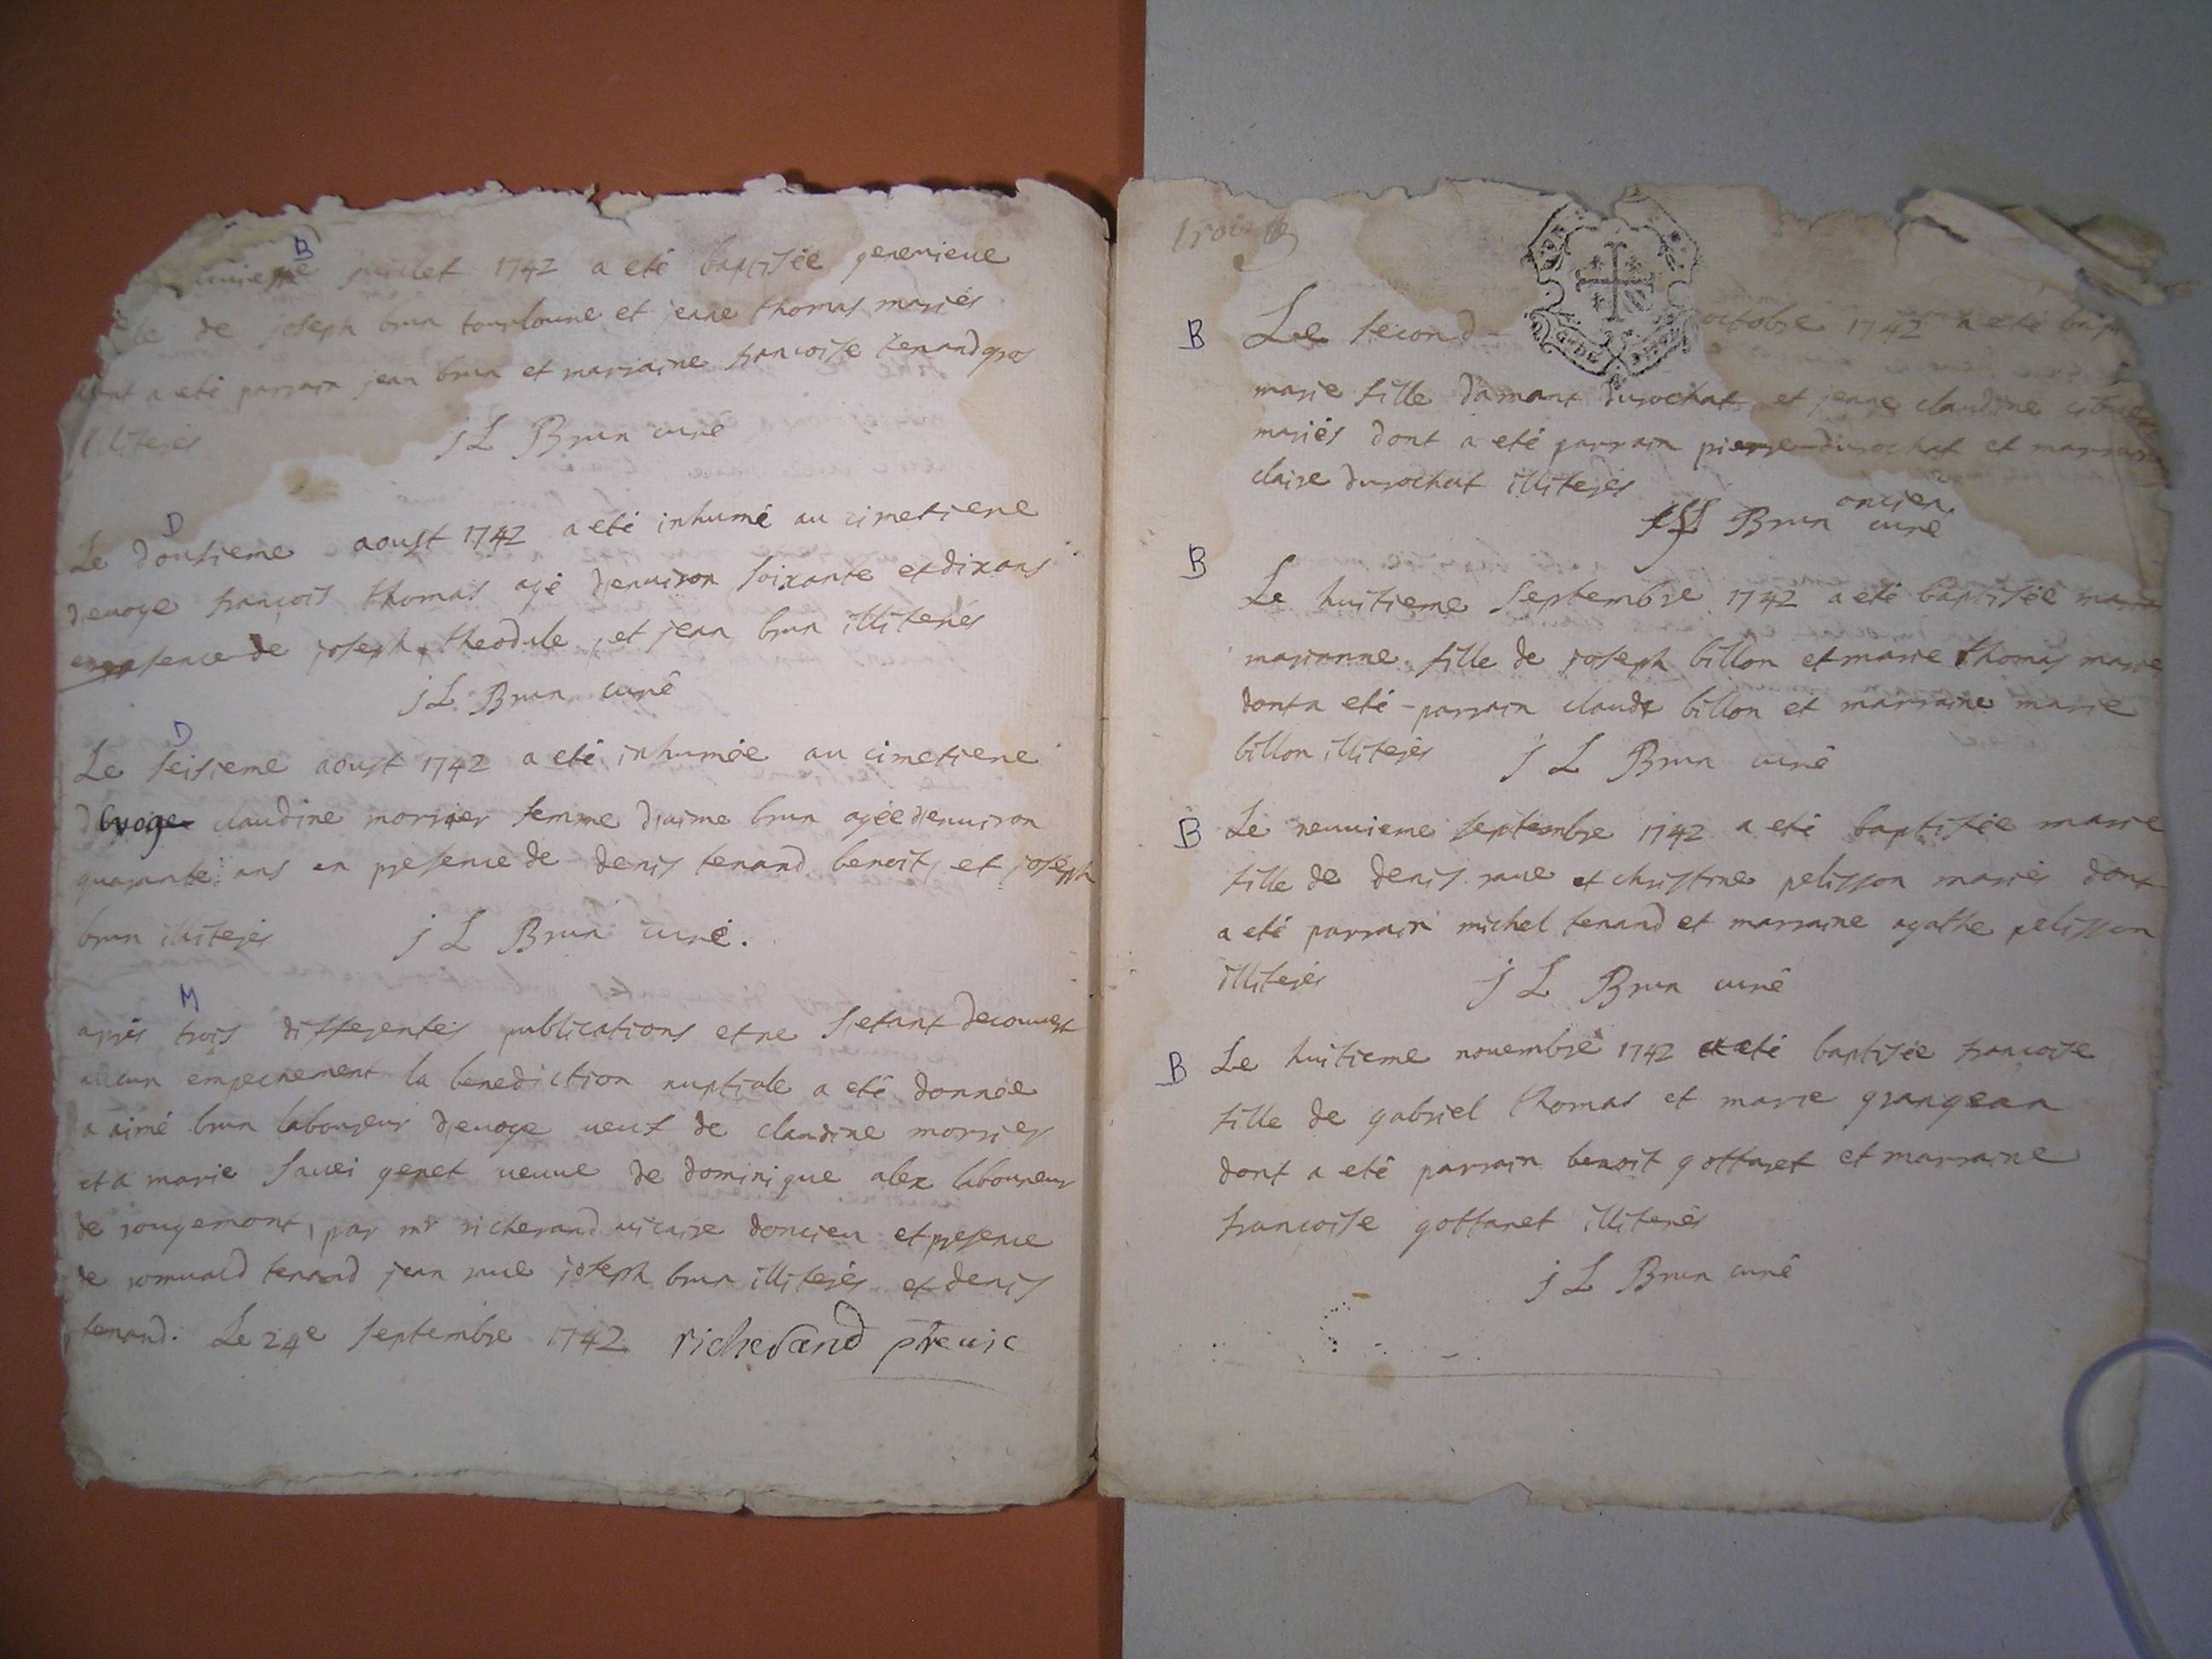 B
juillet 1742 a eté baptisée genevieue
de joseph brun tourloune et jeane thomas mariés
dont a eté parrain jean brun et marraine francoise tenand gros
illiterés j L Brun curé
D
Le dousieme aoust 1742 a eté inhumé au cimetiere
d'euoge francois thomas agé d'enuiron soixante et dix ans
en presence de joseph, theodule, et jean brun illiterés
j L Brun curé
D
Le seisieme aoust 1742 a eté inhumée au cimetiere
d'evoge claudine morrier femme d'aime brun agée d'enuiron
quarante ans en presence de denis tenand benoit, et joseph
brun illiterés j L Brun curé.
M
aprés trois differentes publications et ne s'etant decouvert
aucun empechement la benediction nuptiale a eté donnée
a aimé brun laboureur d'euoge ueuf de claudine morrier
et a marie genet ueuue de dominique alex laboureur
de rougemont, par mr richerand uicaire d'oncieu et presence
de romuald tenand jean rue joseph brun illiterés et denis
tenand. Le 24e septembre 1742 richerand ptre uic
B Le second octobre 1742 a eté bap
marie fille d'amant durochat et jeane claudine
mariés dont a eté parrain pierre durochat et marraine
claire durochat illiterés
Brun curé
B
Le huitieme septembre 1742 a eté baptisée
marianne fille de joseph billon et marie thomas marie
dont a eté parrain claude billon et marraine marie
billon illiterés j L Brun curé
B Le neuuieme septembre 1742 a eté baptisée marie
fille de denis rue et christine pelisson mariés dont
a eté parrain michel tenand et marraine agathe pelisson
illiterés j L Brun curé
B Le huitieme nouembre 1742 a eté baptisée francoise
fille de gabriel thomas et marie grangean
dont a eté parrain benoit gottaret et marraine
francoise gottaret illiterés
j L Brun curé